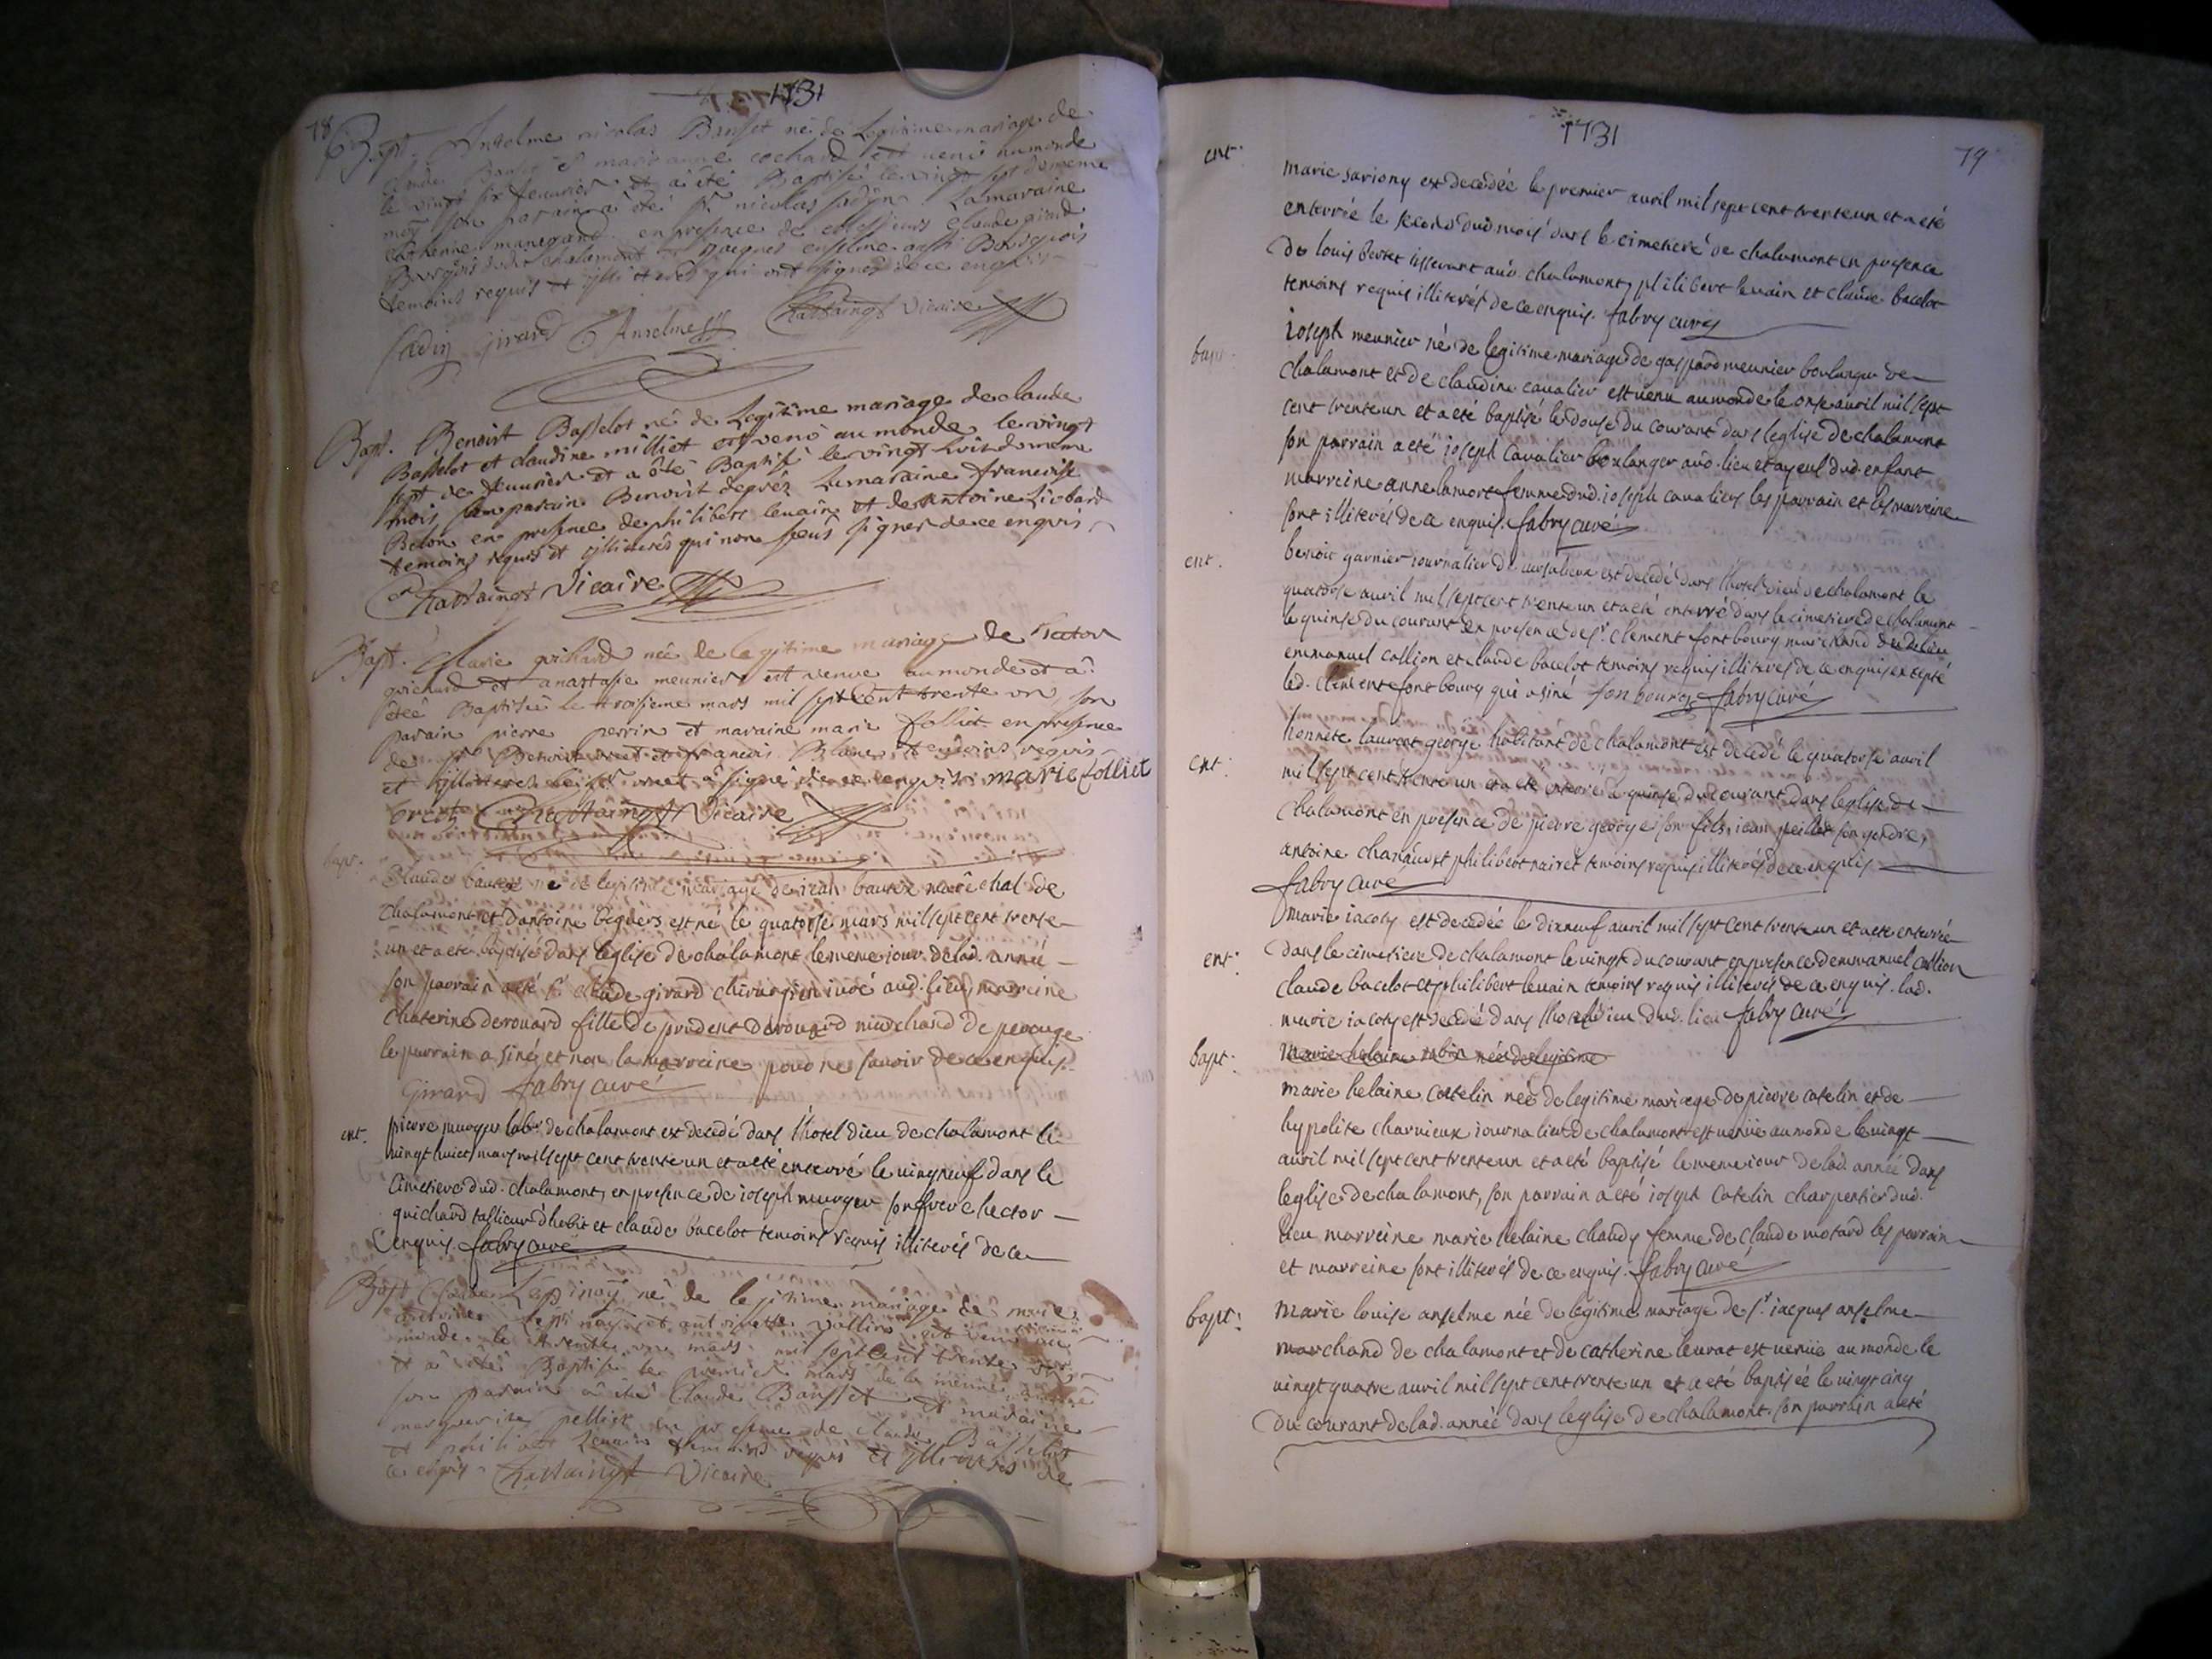 78
1731
Bapt. Anselme nicolas Bauset né de Legitime mariage de
claude Bauset et marianne cochard est venü au monde
le vingt six feuurier et a été Baptisé le vingt sept du meme
mois son parain a été Sr. nicolas sadin La maraine
en presence de claude girard
Bourgois dudit chalamont et Jacques enselme aussi Bourgois
temoins requis et qui ont signés de ce enquis
sadin girard Anselme Chattaingt vicaire
Bapt. Benoist Basselot né de Legitime mariage de claude
Basselot et claudine milliet est venü au monde le vingt
sept de feuurier et a été Baptisé le vingt huit du meme
mois son parain Benoist deprez La maraine francoise
Belon en presence de philibert leuain et de antoine Liobard
temoins requis et illiterés qui non sceus signer de ce enquis
Chattaingt Vicaire
Bapt. Marie guichard née de legitime mariage de hector
guichard et anastasie meunier est venue au monde et a
étéé Baptisée le troisieme mars mil sept cent trente un, son
parain pierre perrin et maraine marie folliet en presence
de Sr Benoist et francois Blanc temoins requis
et illiterés a signé de ce enquis marie folliet
Chattaingt Vicaire
bapt.
Claude bauset né de legitime mariage de iean bauset marêchal de
chalamont et dantoine beguers est né le quatorse mars mil sept cent trente
un et a eté baptisé dans leglise de chalamont le meme iour de lad. année
son parrain a eté sr claude girard chirurgien iuré aud. lieu marreine
chaterine derouard fille de prudent derouard marchand de perouge
le parrain a siné et non la marreine pour ne sauoir de ce enquis.
Girard fabry curé
ent. pierre murger labr de chalamont est decedé dans l'hotel dieu de chalamont le
vingt huict mars mil sept cent trente un et a eté enterré le vingneuf dans le
cimetiere dud. chalamont, en presence de ioseph murger son frere hector
guichard tallieur d'habit et claude bacelot temoins requis illiterés de ce
enquis. fabry curé
Bapt. Claude Lespinoÿ né de legitime mariage de
et antoinette vallin est venu au
monde le trente un mars mil sept cent trente un
et a été Baptisé le premier mars de la meme année
son parain a été Claude Bausset et maraine
marguerite pellier en presence de claude Basselot
et philibert Leuain temoins requis et illiterés de
ce enquis Chattaingt Vicaire
1731
79
ent. marie sariony est decedée le premier auril mil sept cent trente un et a eté
enterrée le second dud mois dans le cimetiere de chalamont en presence
de louis bertet tisserant aud. chalamont, philibert leuain et claude bacelot
temoins requis illiterés de ce enquis. fabry curé
bapt. ioseph meunier né de legitime mariage de gaspard meunier boulanger de
chalamont et de claudine caualier est venu au monde le onse auril mil sept
cent trente un et a eté baptisé le douse du courant dans leglise de chalamont
son parrain a eté ioseph caualier boulanger aud. lieu et ayeul dud. enfant
marreine anne lamort femme dud. ioseph caualier les parrain et les marreine
sont illiterés de ce enquis. fabry curé
ent. benoit garnier iournalier de est decedé dans lhotel dieu de chalamont le
quatorse auril mil sept cent trente un et a eté enterré dans le cimetiere de chalamont
le quinse du courant en presence de sr clement fontboury marchand dud lieu
emmanuel collion et claude bacelot temoins requis illiterés de ce enquis excepté
led. clement fontboury qui a siné fonbourg fabry curé
ent. honnete laurent george habitant de chalamont est decedé le quatorse auril
mil sept cent trente un et a eté enterré le quinse du courant dans leglise de
chalamont en presence de pierre george son fils, iean peillet son gendre,
antoine et philibert temoins requis illiterés de ce enquis
fabry curé
ent. marie iacoty est decedée le dixneuf auril mil sept cent trente un et a eté enterrée
dans le cimetiere de chalamont le vingt du courant en presence demmanuel collion
claude bacelot et philibert leuain temoins requis illiterés de ce enquis. lad.
marie iacoty est decedé dans lhotel dieu dud. lieu fabry curé
bapt. marie helaine robin née de legitime
marie helaine catelin née de legitime mariage de pierre catelin et de
hypolite charuieux iournalier de chalamont est venüe au monde le vingt
auril mil sept cent trente un et a eté baptisé le meme iour de lad. année dans
leglise de chalamont, son parrain a eté ioseph catelin charpentier dud.
lieu marreine marie helaine chaudy femme de claude motard les parrain
et marreine sont illiterés de ce enquis. fabry curé
bapt. marie louise anselme née de legitime mariage de sr iacques anselme
marchand de chalamont et de catherine leurat est venüe au monde le
vingt quatre auril mil sept cent trente un et a eté baptiséé le vingt cinq
du courant de lad. année dans leglise de chalamont. son parrain a eté